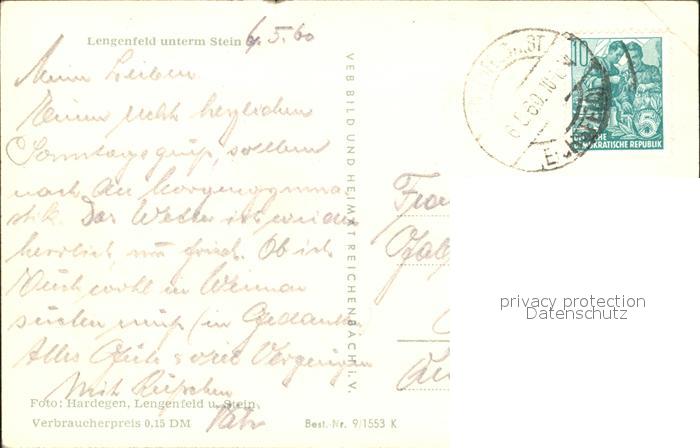 Lengenfeld unterm Stein 6.5.60
Meine Lieben
Einen recht herzlichen
Sonntagsgruß, sollen
nach der Morgengymna-
stik. Das Wetter ist wieder
herrlich, nur frisch. Ob ich
Euch wohl in Weimar
suchen muß (in Gedanken)
Alles Gute & viel Vergnügen
Mit Küßchen
Foto: Hardegen, Lengenfeld u. Stein
Verbraucherpreis 0,15 DM
Best.-Nr. 9/1553 K
VEB BILD UND HEIMAT REICHENBACH i. V.
6.5.60.10
10
5
KRATISCHE REPUBLIK
privacy protection
Datenschutz